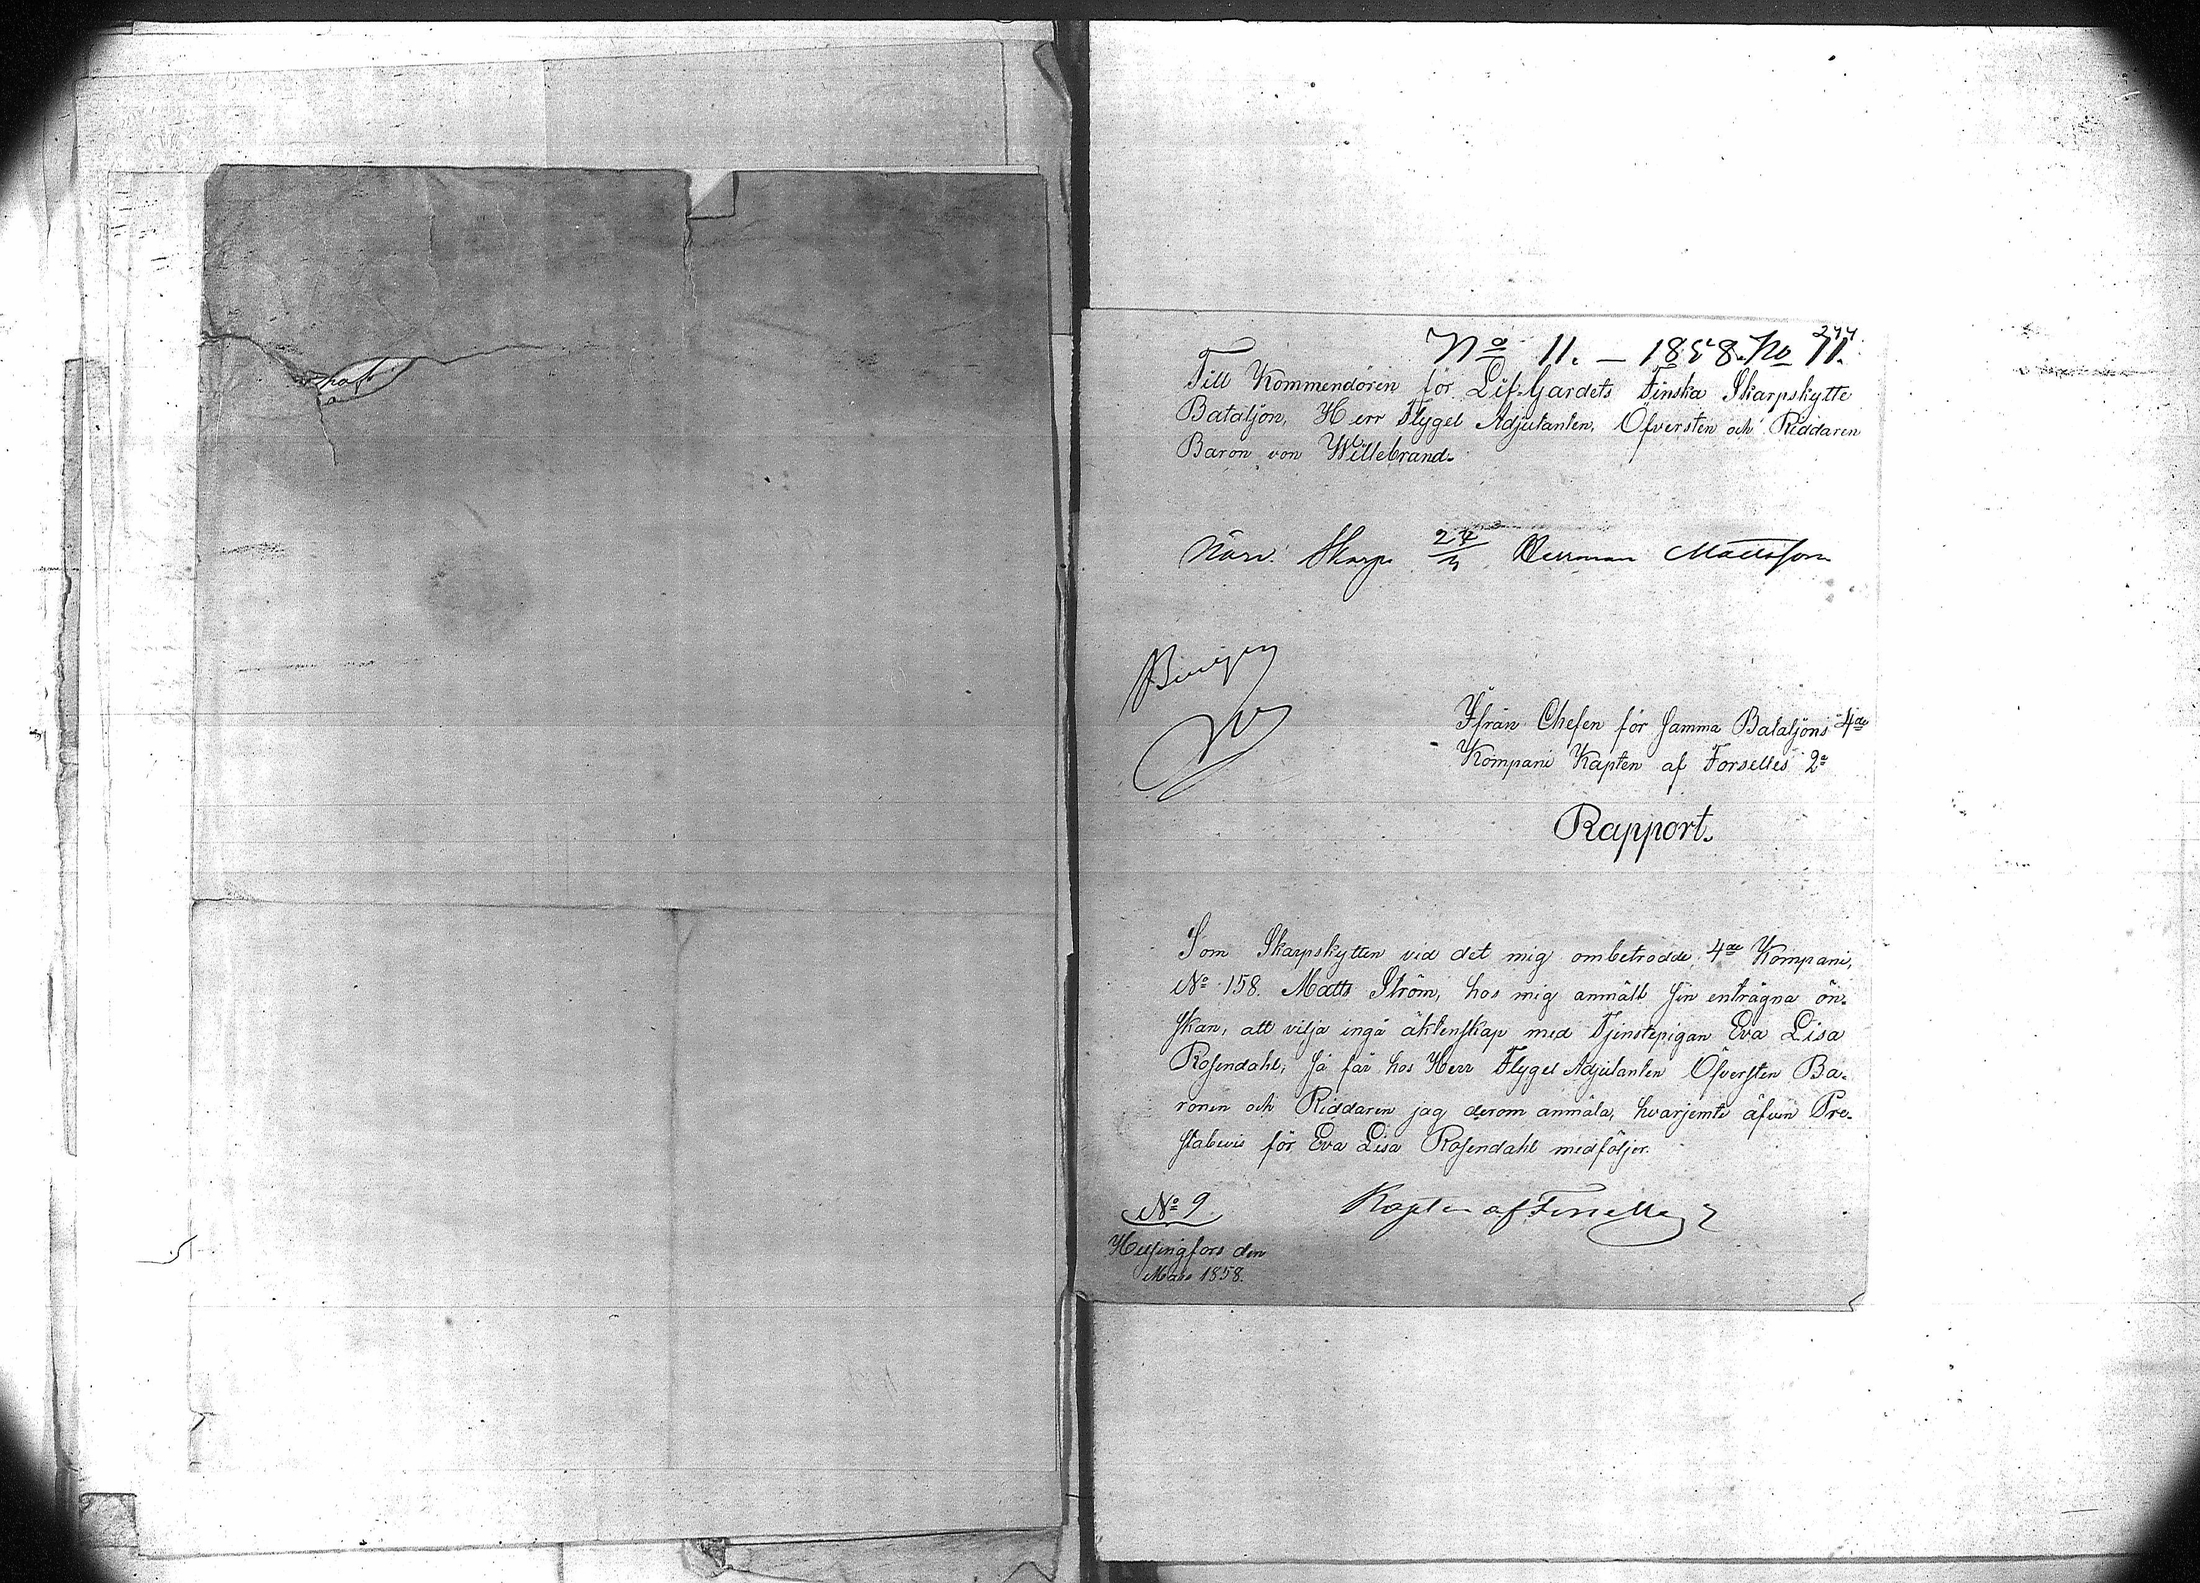 277
No 11. — 1858. No 11.
Till Kommendören för Lif-Gardets Finska Skarpskytte
Bataljon, Herr Flygel Adjutanten, Öfversten och Riddaren
Baron von Willebrand.
Skarp. Herman Mattsson
Ifrån Chefen för samma Bataljons 4de
Kompani Kapten af Forselles 2e
Rapport.
Som Skarpskytten vid det mig ombetrodde 4de Kompani,
No 158. Matts Ström, hos mig anmält sin enträgna ön-
skan, att vilja ingå äktenskap med Tjenstepigan Eva Lisa
Rosendahl, så får hos Herr Flygel Adjutanten Öfversten Ba-
ronen och Riddaren jag derom anmäla, hvarjemte äfven Pre-
stabevis för Eva Lisa Rosendahl medföljer.
Kapten af Forselles
No 9.
Helsingfors den
Mars 1858.